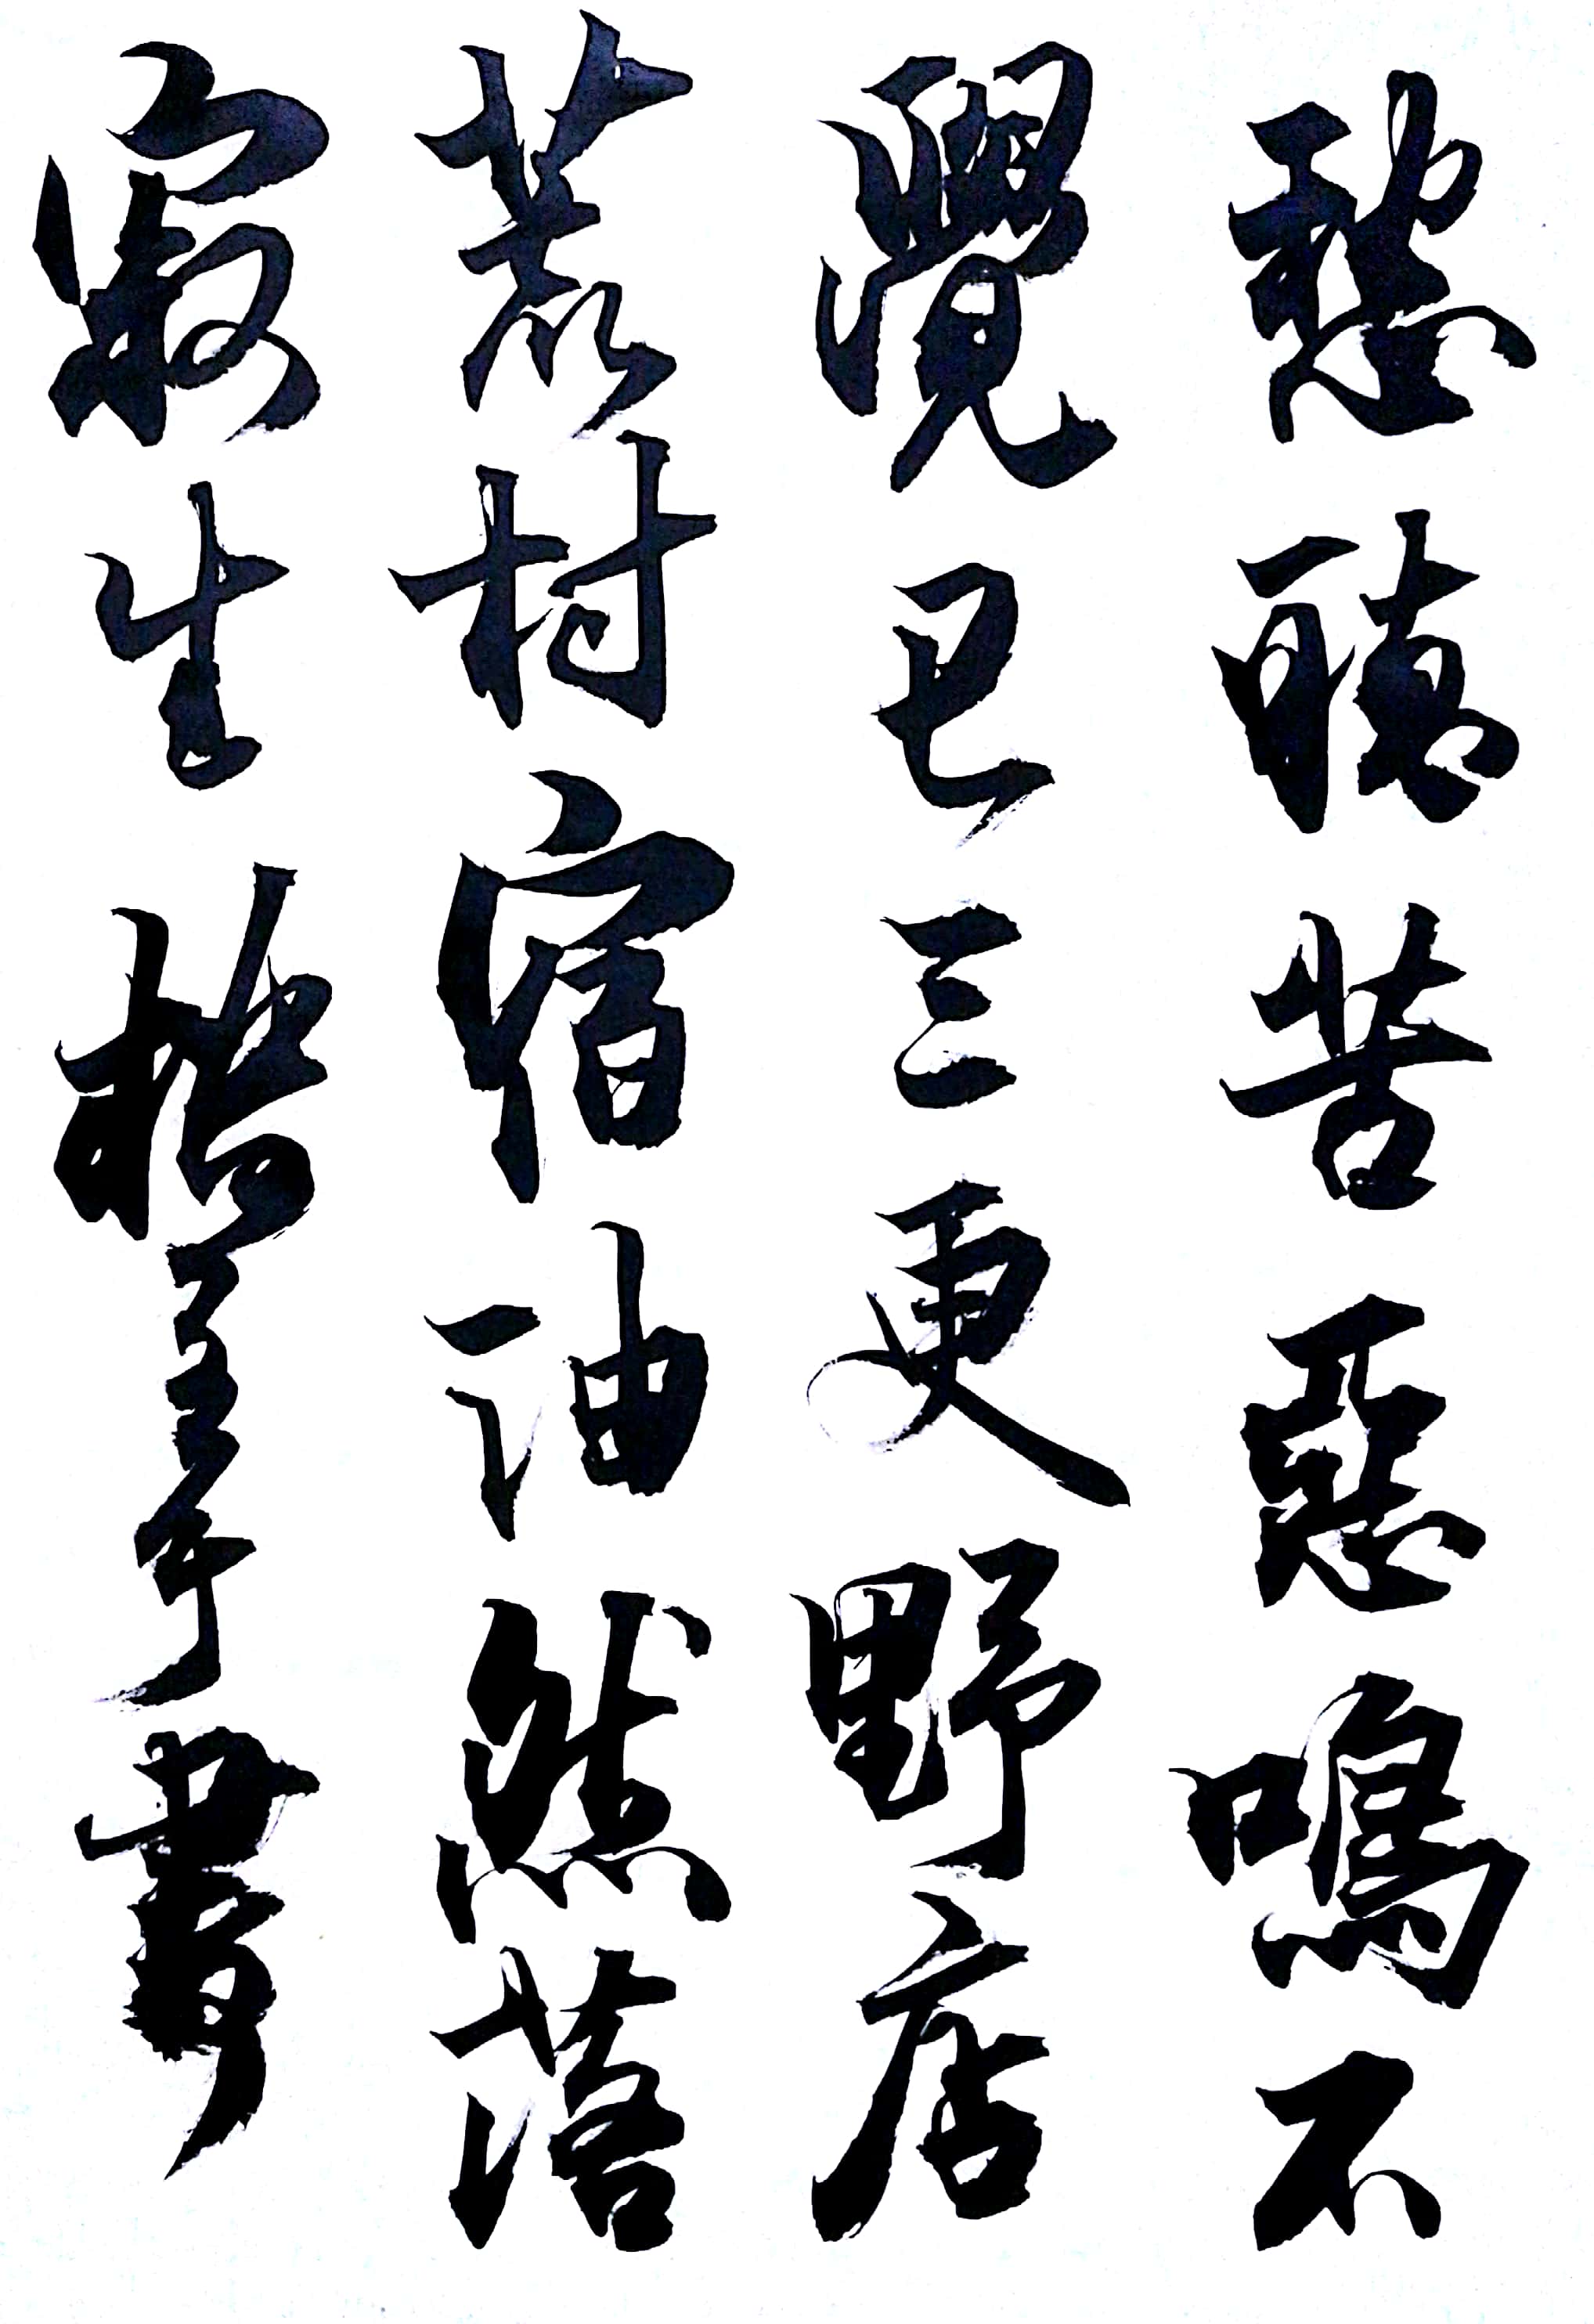 愁聽苦惡鳴不
覺已三更野店
荒村宿油然落
寂生 書